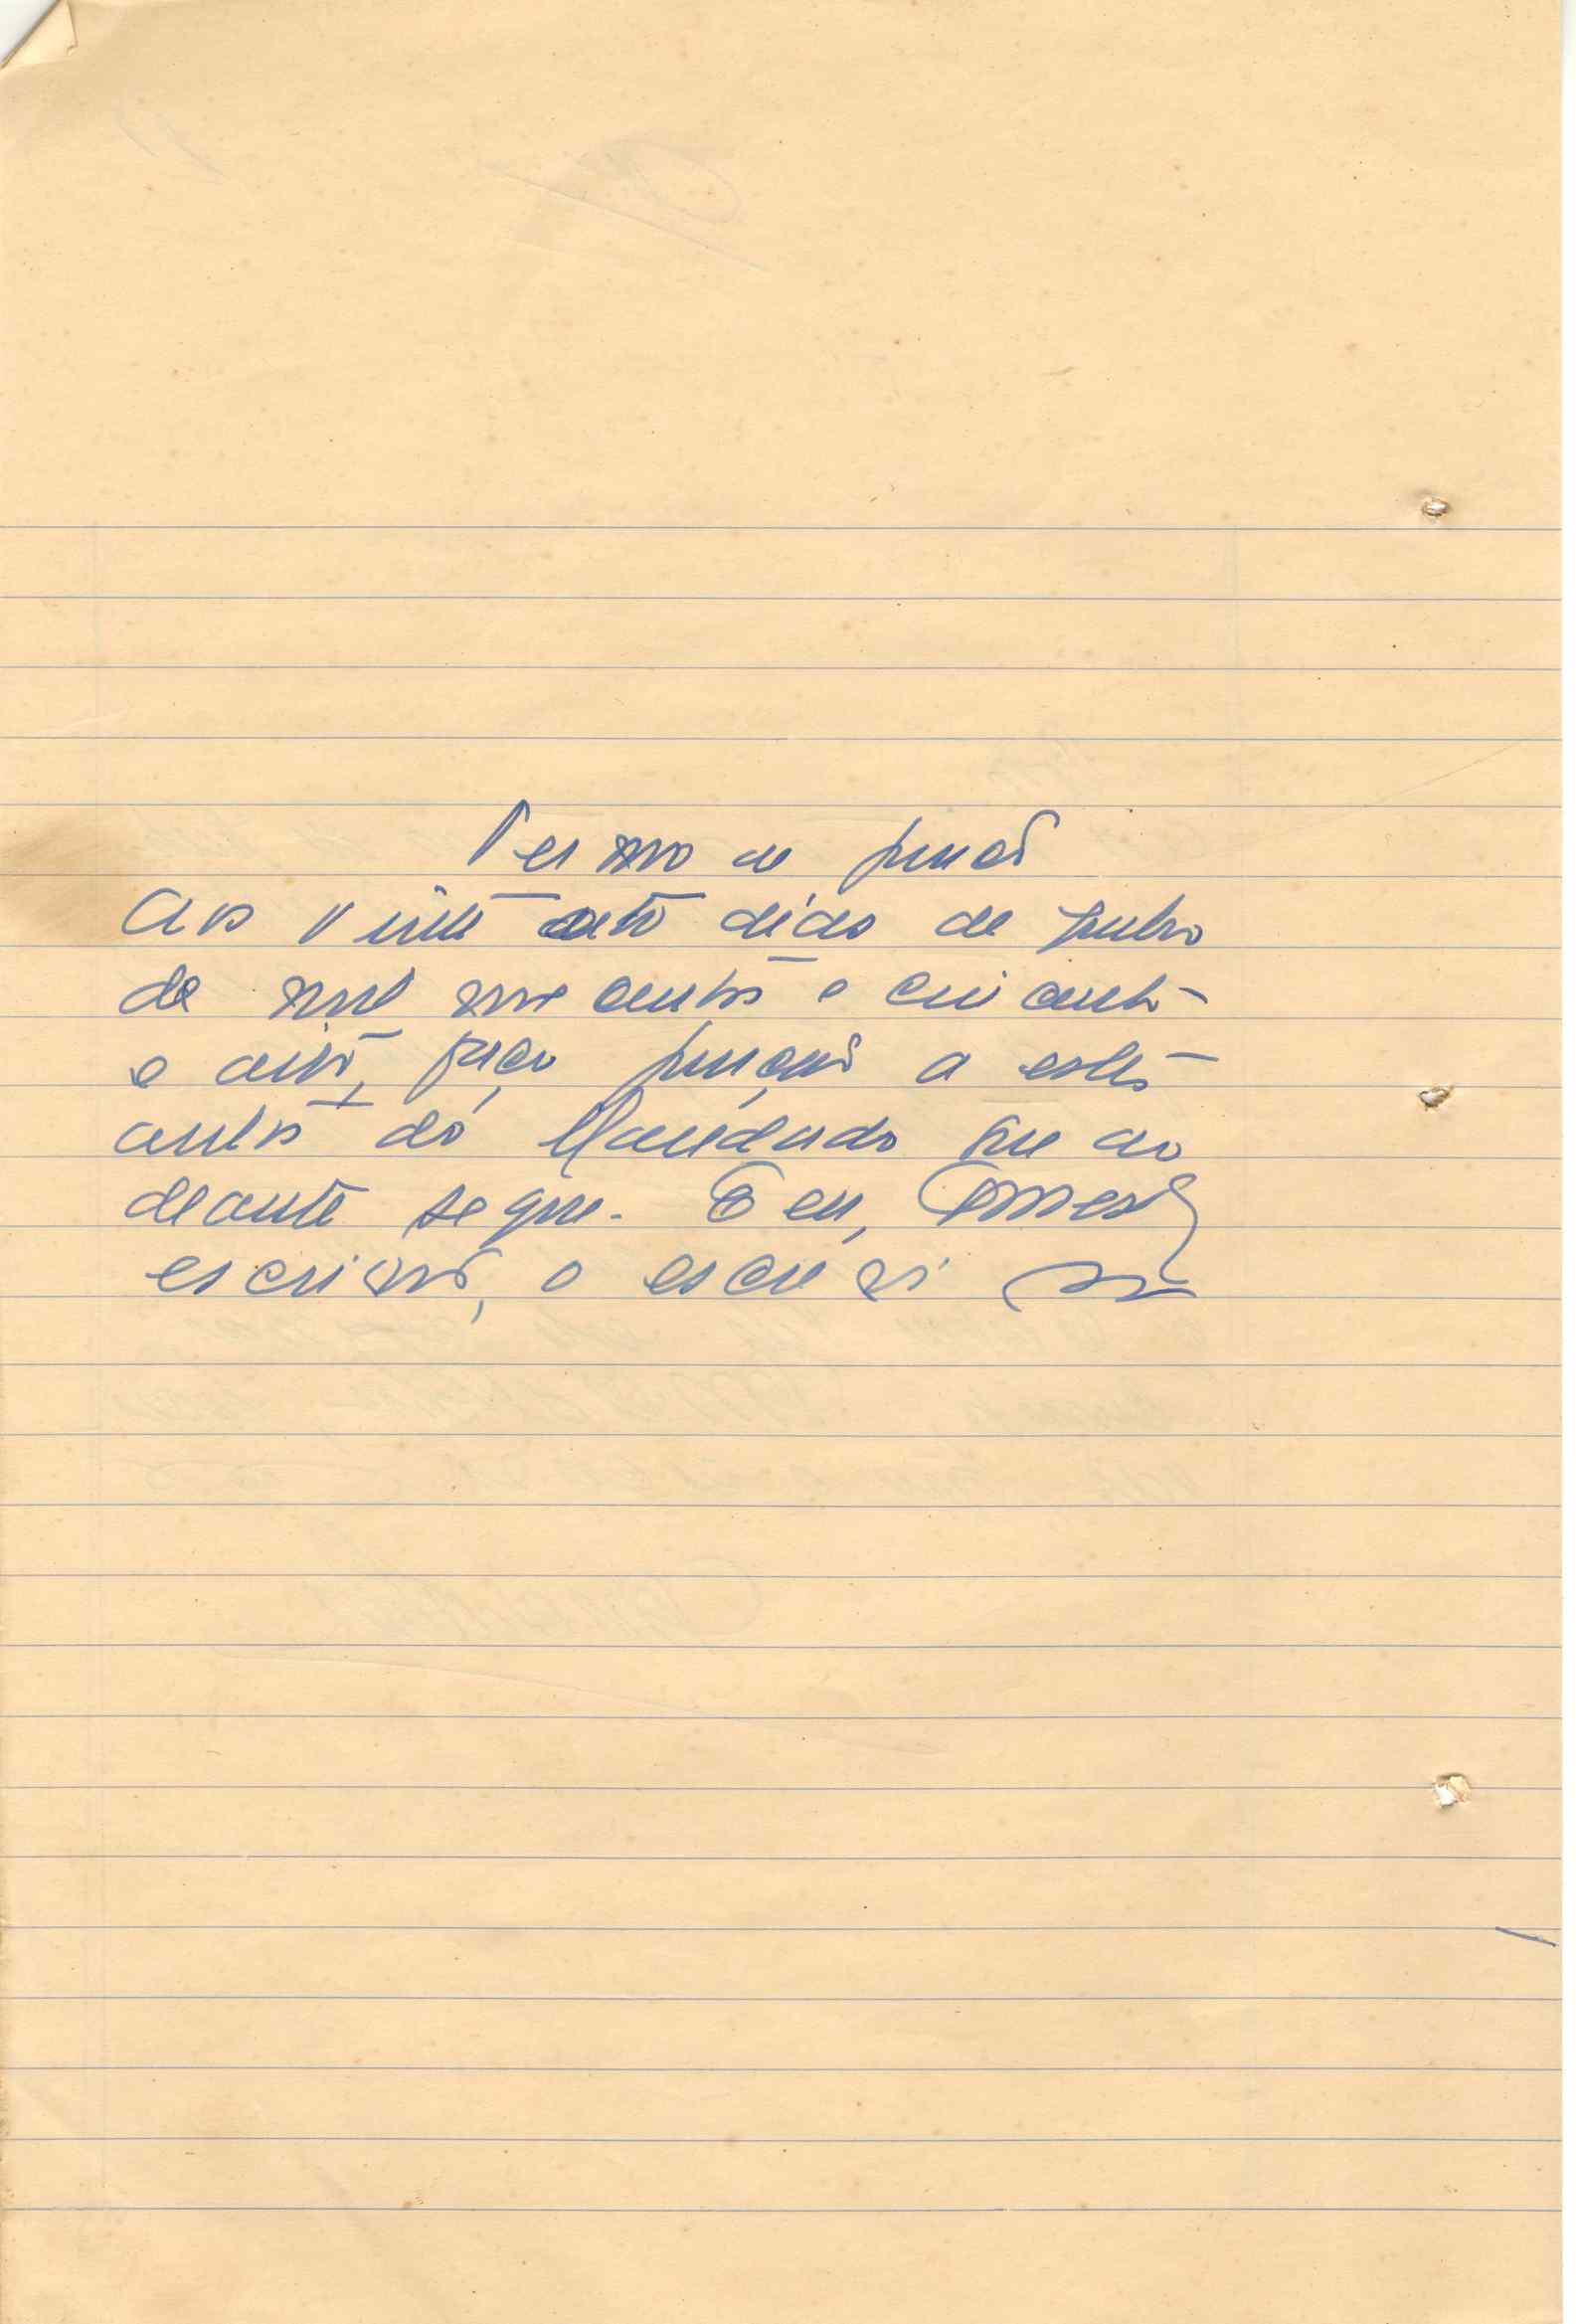 Termo de junção
Aos vinte oito dias de julho
de mil novecentos e cincoenta
e oito, faço junção a estes
autos do Mandado que ao
deante segue. E eu,
escrivão, o escrevi